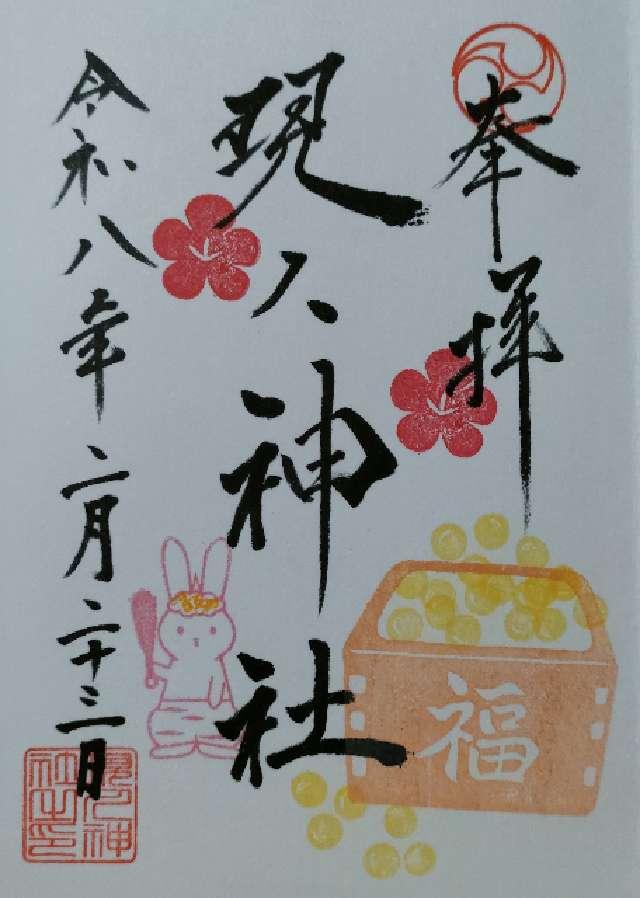 奉拝
現人神社
令和八年二月二十三日
福
現人神
社之印